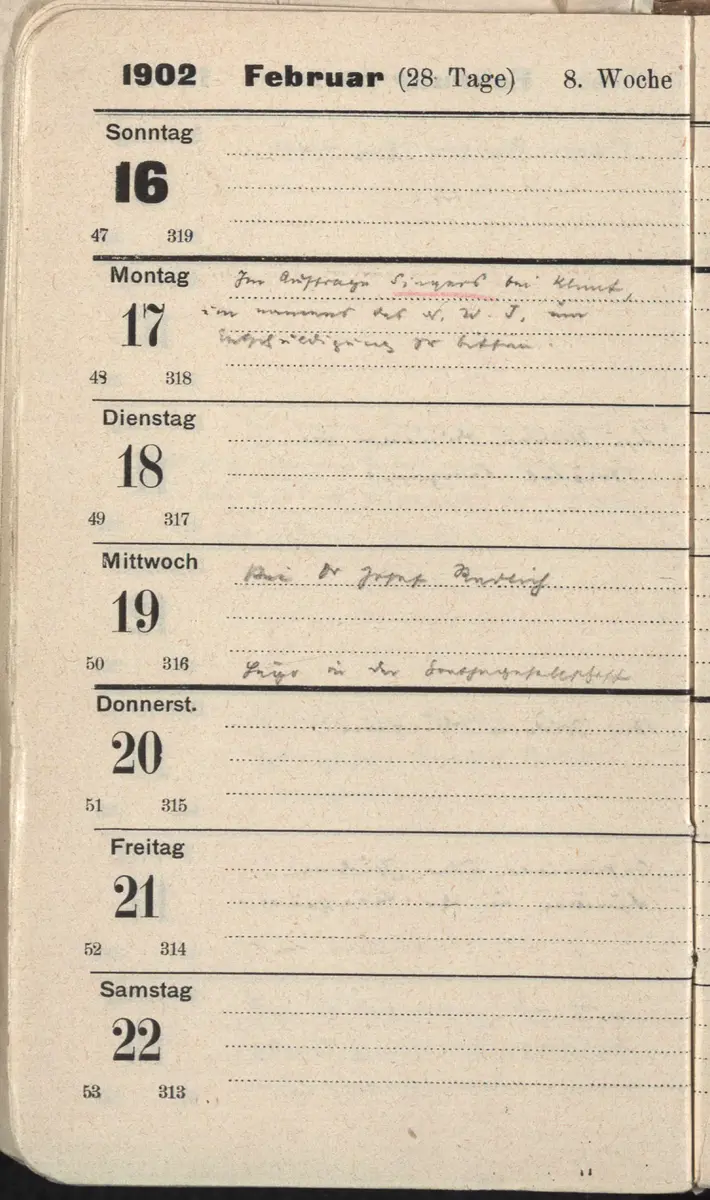 1902 Februar (28 Tage) 8. Woche
Sonntag
16
47 319
Montag
Im Auftrage Singers bei Klimt,
17
um namens des N. W. J. um
Entschuldigung zu bitten.
48 318
Dienstag
18
49 317
Mittwoch
Bei Dr Josef Redlich
19
50 316
in der Goethegesellschaft
Donnerst.
20
51 315
Freitag
21
52 314
Samstag
22
53 313